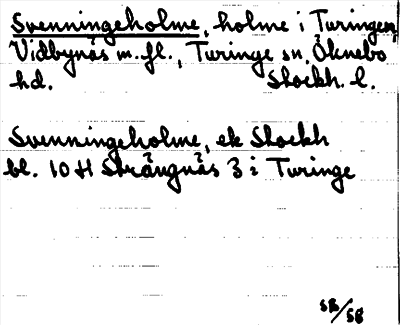 Svenningeholme, holme i Turingen,
Vidbynäs m.fl., Turinge sn, Öknebo
hd. Stockh. l.
Svenningeholme, ek Stockh
bl. 10 H Strängnäs 3 i Turinge
SB/SB